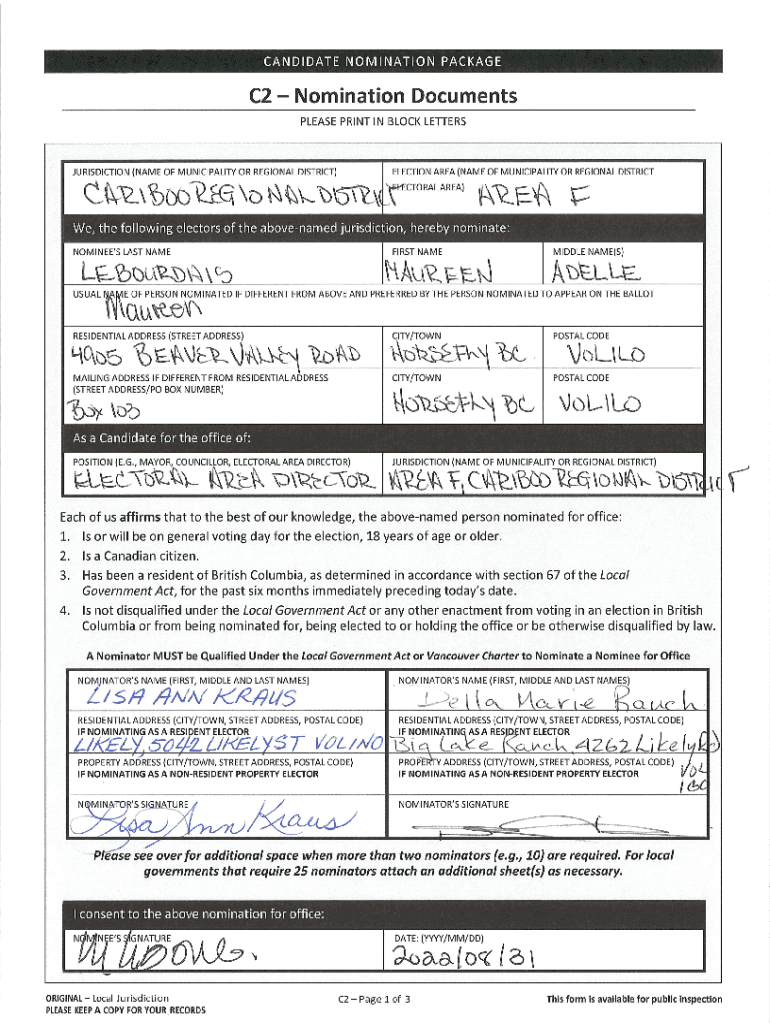 CANDIDATE NOMINATION PACKAGE
C2 – Nomination Documents
PLEASE PRINT IN BLOCK LETTERS
JURISDICTION (NAME OF MUNICIPALITY OR REGIONAL DISTRICT)
ELECTION AREA (NAME OF MUNICIPALITY OR REGIONAL DISTRICT
ELECTORAL AREA)
CARIBOO REGIONAL DISTRICT
AREA F
We, the following electors of the above-named jurisdiction, hereby nominate:
NOMINEE'S LAST NAME
FIRST NAME
MIDDLE NAME(S)
LEBOURDAIS
MAUREEN
ADELLE
USUAL NAME OF PERSON NOMINATED IF DIFFERENT FROM ABOVE AND PREFERRED BY THE PERSON NOMINATED TO APPEAR ON THE BALLOT
Maureen
RESIDENTIAL ADDRESS (STREET ADDRESS)
CITY/TOWN
POSTAL CODE
4905 BEAVER VALLEY ROAD
HORSEFLY BC.
V0L1L0
MAILING ADDRESS IF DIFFERENT FROM RESIDENTIAL ADDRESS
(STREET ADDRESS/PO BOX NUMBER)
CITY/TOWN
POSTAL CODE
Box 103
HORSEFLY BC
V0L1L0
As a Candidate for the office of:
POSITION (E.G., MAYOR, COUNCILLOR, ELECTORAL AREA DIRECTOR)
JURISDICTION (NAME OF MUNICIPALITY OR REGIONAL DISTRICT)
ELECTORAL AREA DIRECTOR
AREA F, CARIBOO REGIONAL DISTRICT
Each of us affirms that to the best of our knowledge, the above-named person nominated for office:
1. Is or will be on general voting day for the election, 18 years of age or older.
2. Is a Canadian citizen.
3. Has been a resident of British Columbia, as determined in accordance with section 67 of the Local
Government Act, for the past six months immediately preceding today's date.
4. Is not disqualified under the Local Government Act or any other enactment from voting in an election in British
Columbia or from being nominated for, being elected to or holding the office or be otherwise disqualified by law.
A Nominator MUST be Qualified Under the Local Government Act or Vancouver Charter to Nominate a Nominee for Office
NOMINATOR'S NAME (FIRST, MIDDLE AND LAST NAMES)
NOMINATOR'S NAME (FIRST, MIDDLE AND LAST NAMES)
LISA ANN KRAUS
Della Marie Rauch
RESIDENTIAL ADDRESS (CITY/TOWN, STREET ADDRESS, POSTAL CODE)
IF NOMINATING AS A RESIDENT ELECTOR
RESIDENTIAL ADDRESS (CITY/TOWN, STREET ADDRESS, POSTAL CODE)
IF NOMINATING AS A RESIDENT ELECTOR
LIKELY, 5042 LIKELY ST V0L1N0
Big Lake Ranch, 4262 Likely Rd
V0L
1G0
PROPERTY ADDRESS (CITY/TOWN, STREET ADDRESS, POSTAL CODE)
IF NOMINATING AS A NON-RESIDENT PROPERTY ELECTOR
PROPERTY ADDRESS (CITY/TOWN, STREET ADDRESS, POSTAL CODE)
IF NOMINATING AS A NON-RESIDENT PROPERTY ELECTOR
NOMINATOR'S SIGNATURE
NOMINATOR'S SIGNATURE
Lisa Ann Kraus
Please see over for additional space when more than two nominators (e.g., 10) are required. For local
governments that require 25 nominators attach an additional sheet(s) as necessary.
I consent to the above nomination for office:
NOMINEE'S SIGNATURE
DATE: (YYYY/MM/DD)
2022/08/31
ORIGINAL – Local Jurisdiction
PLEASE KEEP A COPY FOR YOUR RECORDS
C2 – Page 1 of 3
This form is available for public inspection